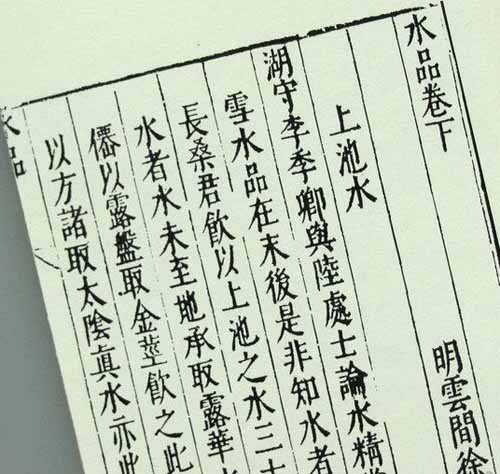 水品卷下
明雲間徐
上池水
湖守李季卿與陸處士論水精
雪水品在末後是非知水者
長桑君飲以上池之水三十
水者水未至地承取露華
僊以露盤取金莖飲之此
以方諸取太陰眞水亦此
水品